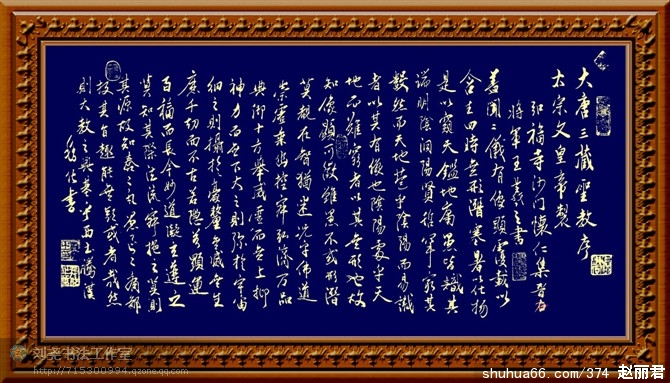 大唐三藏聖教序
太宗文皇帝製
弘福寺沙門懷仁集晉右
將軍王羲之書
蓋聞二儀有像顯覆載以
含生四時無形潛寒暑以化物
是以窺天鑑地庸愚皆識其
端明陰洞陽賢哲罕窮其
數然而天地苞乎陰陽而易識
者以其有像也陰陽處乎天
地而難窮者以其無形也故
知像顯可徵雖愚不惑形潛
莫覩在智猶迷況乎佛道
崇虛乘幽控寂弘濟萬品
典御十方舉威靈而無上抑
神力而無下大之則彌於宇宙
細之則攝於毫釐無滅無生
歷千劫而不古若隱若顯運
百福而長今妙道凝玄遵之
莫知其際法流湛寂挹之莫測
其源故知蠢蠢凡愚區區庸鄙
投其旨趣能無疑惑者哉然
則大教之興基乎西土騰漢
书
刘尧书法工作室
http://715300994.qzone.qq.com
shuhua66.com/374 赵丽君